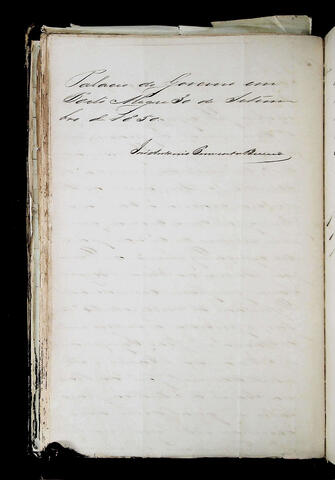 Palacio do Governo em
Porto Alegre 30 de Setem
bro de 1850.
José Antonio Pimenta Bueno